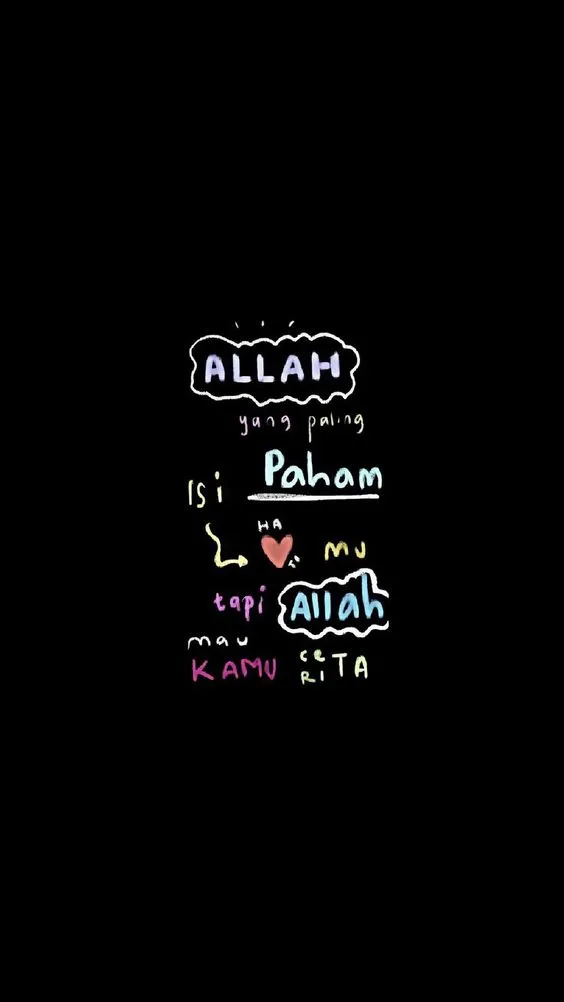 ALLAH
yang paling
Paham
isi
HATI mu
tapi Allah
mau
KAMU CERITA